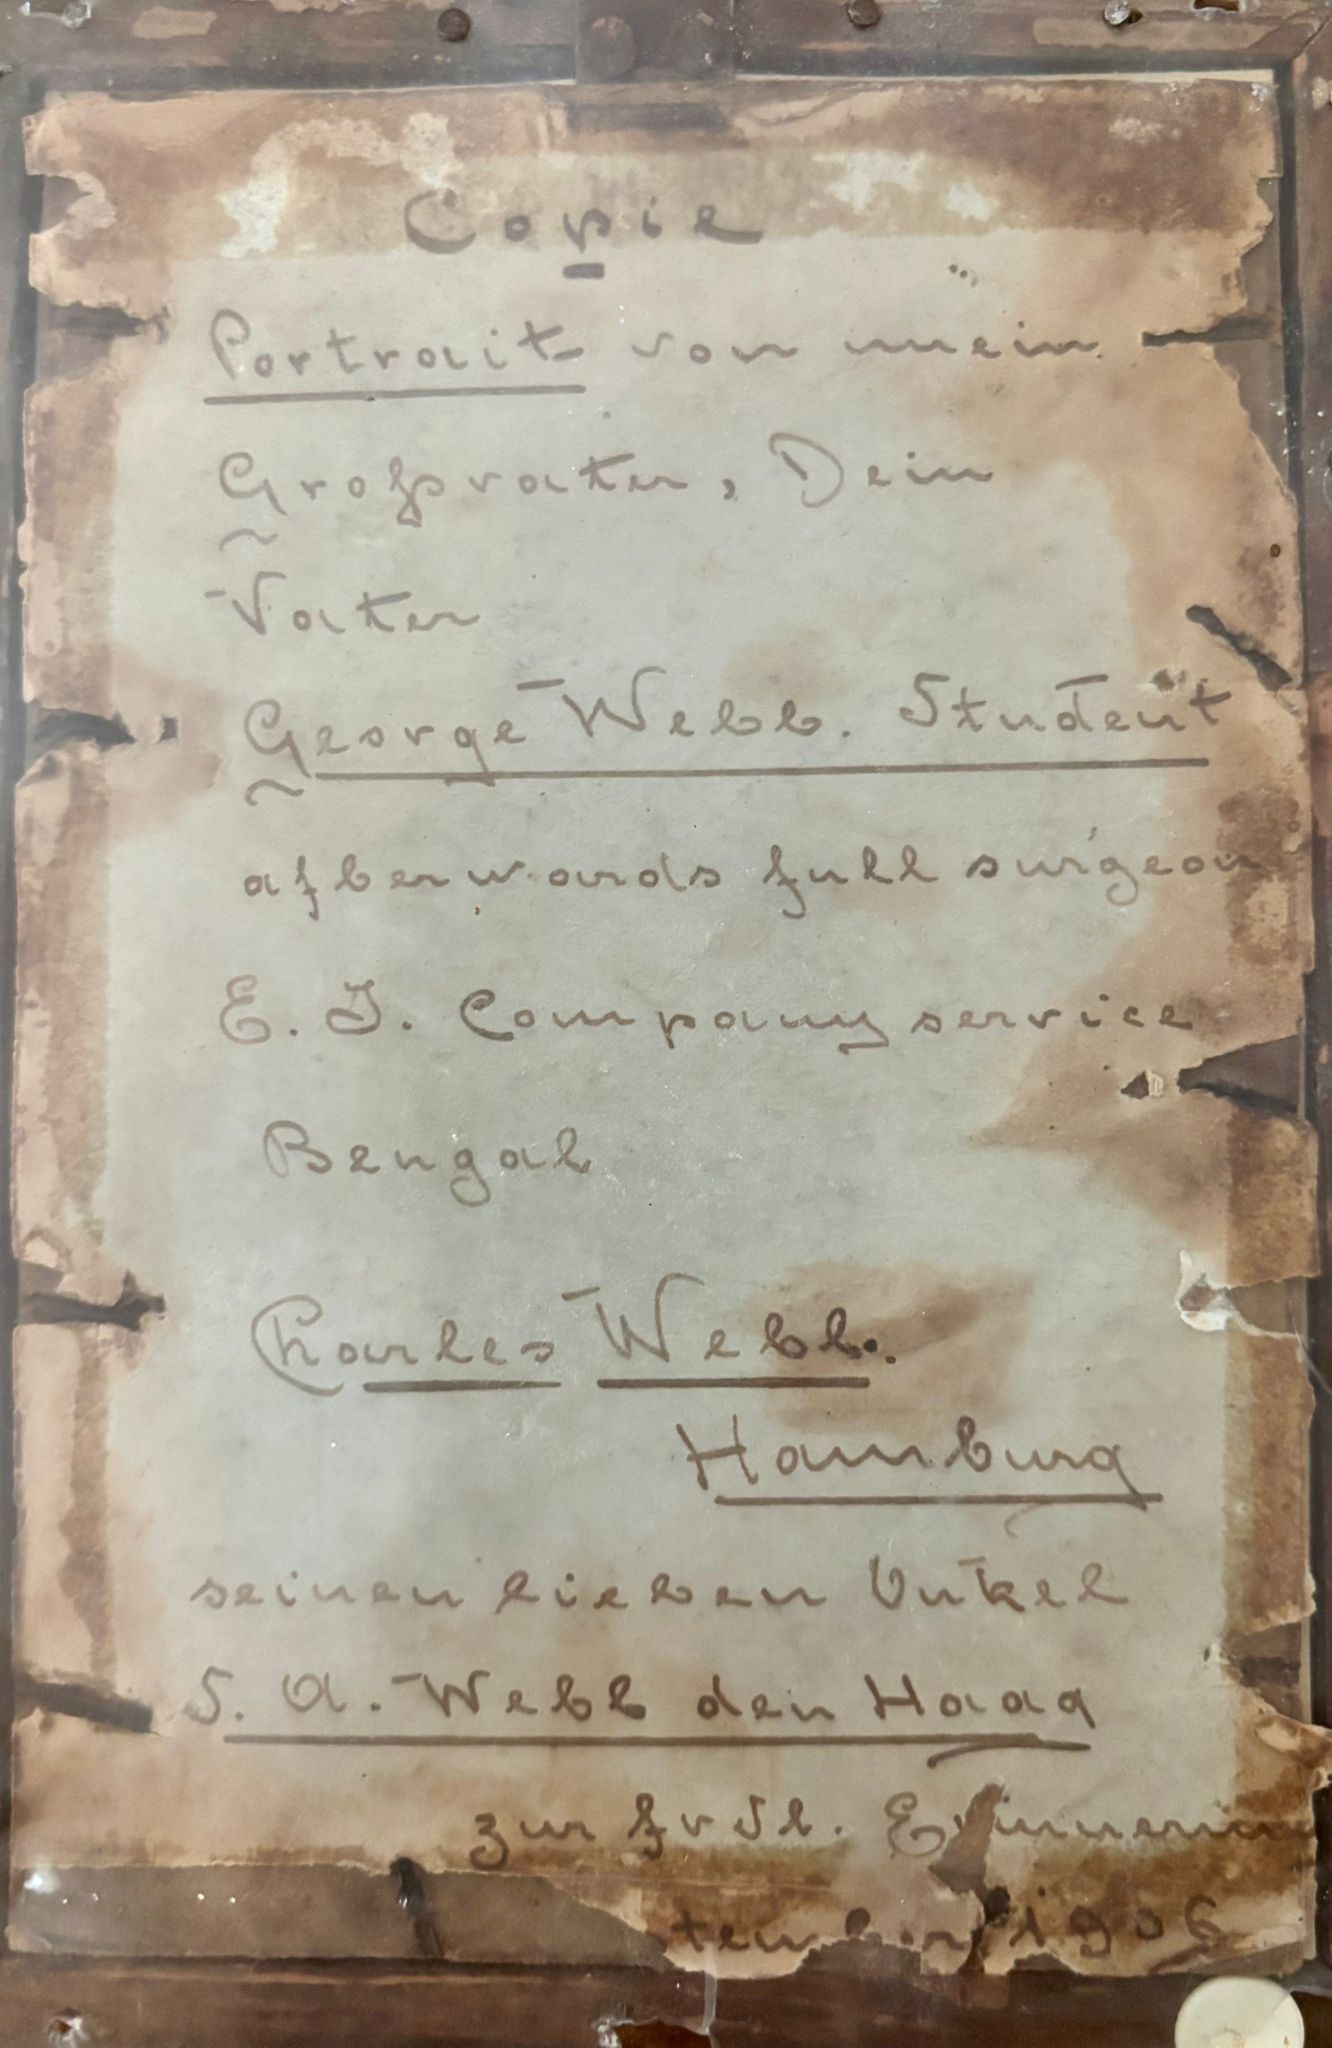 Copie
Portrait von mein
Großvater, Dein
Vater
George Webb. Student
afterwards full surgeon
E. I. Company service
Bengal
Charles Webb.
Hamburg
seinen lieben Onkel
S. A. Webb den Haag
zur frdl. Erinnerung
tember 1906